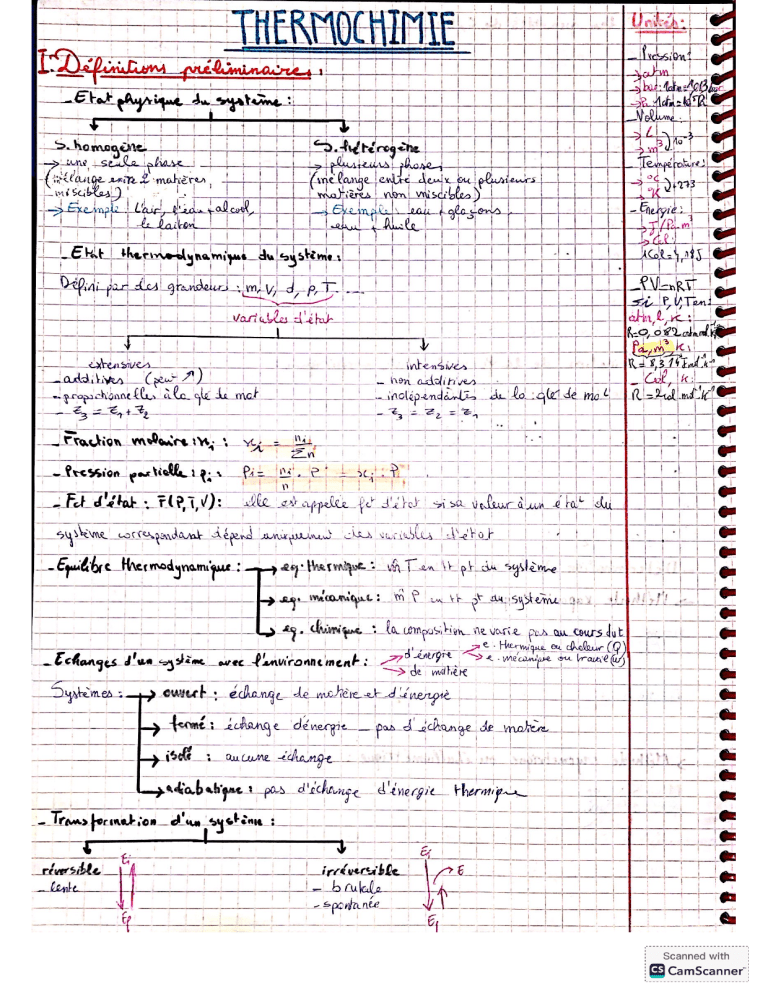 THERMOCHIMIE
I. Définitions préliminaires:
- Etat physique du système:
S. homogène
→ une seule phase
(mélange entre 2 matières
miscibles)
→ Exemple: L'air, l'eau + alcool,
le laiton
S. hétérogène
→ plusieurs phases
(mélange entre deux ou plusieurs
matières non miscibles)
→ Exemple: eau + glaçons,
eau + huile
- Etat thermodynamique du système:
Défini par des grandeurs: m, V, d, p, T....
variables d'état
extensives
- additives (peut ↗)
- proportionnelles à la qte de mat
- Z3 = Z1 + Z2
intensives
- non additives
- indépendantes de la qte de mat
- Z3 = Z2 = Z1
- Fraction molaire: xi: xi = ni/Σn
- Pression partielle: pi: Pi = ni/n . P = xi . P
- Fct d'état: F(P,T,V): elle est appelée fct d'état si sa valeur à un état du
système correspondant dépend uniquement des variables d'état
- Equilibre thermodynamique:
→ eq. thermique: m̂ T en tt pt du système
→ eq. mécanique: m̂ P en tt pt du système
→ eq. chimique: la composition ne varie pas au cours du t
- Echanges d'un système avec l'environnement:
→ d'énergie
→ e. thermique ou chaleur (Q)
→ e. mécanique ou travail (w)
→ de matière
Systèmes:
→ ouvert: échange de matière et d'énergie
→ fermé: échange d'énergie _ pas d'échange de matière
→ isolé: aucune échange
→ adiabatique: pas d'échange d'énergie thermique
- Transformation d'un système:
réversible
- lente
Ei
Ef
irréversible
- brutale
- spontanée
Ei
E
Ef
Unités:
- Pression:
→ atm
→ bar: 1atm = 1,013 bar
→ Pa 1atm = 10⁵ Pa
- Volume:
→ L
→ m³
10⁻³
- Température:
→ °C
→ °K
+273
- Energie:
→ J/Pa.m³
→ Cal:
1Cal = 4,18J
- PV = nRT
si P, V, T en:
atm, l, K:
R = 0,082
Pa, m³, K:
R = 8,314
- Cal, K:
R = 2 cal.mol⁻¹K⁻¹
Scanned with
CS CamScanner